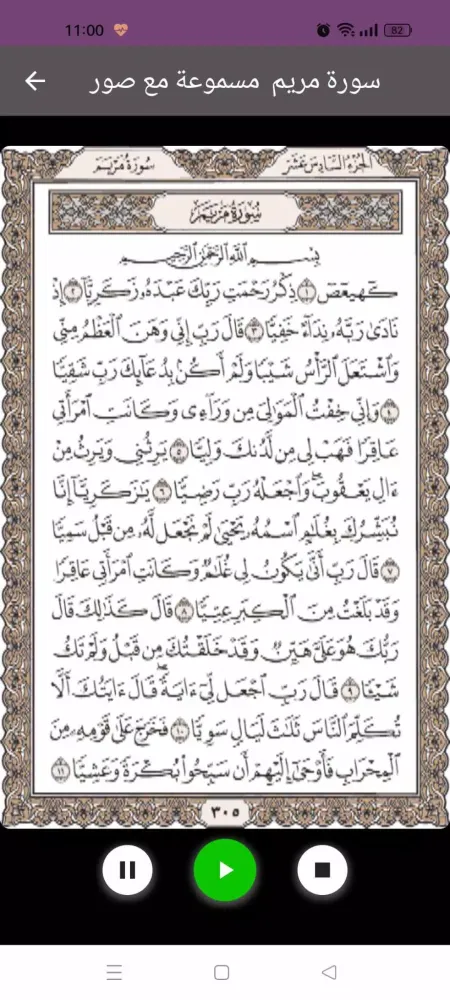 11:00
82
سورة مريم مسموعة مع صور
الجزء السادس عشر
سورة مريم
سورة مريم
بِسْمِ اللَّهِ الرَّحْمَٰنِ الرَّحِيمِ
كٓهيعٓصٓ ١ ذِكْرُ رَحْمَتِ رَبِّكَ عَبْدَهُۥ زَكَرِيَّآ ٢ إِذْ
نَادَىٰ رَبَّهُۥ نِدَآءً خَفِيًّا ٣ قَالَ رَبِّ إِنِّى وَهَنَ ٱلْعَظْمُ مِنِّى
وَٱشْتَعَلَ ٱلرَّأْسُ شَيْبًا وَلَمْ أَكُنۢ بِدُعَآئِكَ رَبِّ شَقِيًّا
٤ وَإِنِّى خِفْتُ ٱلْمَوَٰلِىَ مِن وَرَآءِى وَكَانَتِ ٱمْرَأَتِى
عَاقِرًا فَهَبْ لِى مِن لَّدُنكَ وَلِيًّا ٥ يَرِثُنِى وَيَرِثُ مِنْ
ءَالِ يَعْقُوبَ ۖ وَٱجْعَلْهُ رَبِّ رَضِيًّا ٦ يَٰزَكَرِيَّآ إِنَّا
نُبَشِّرُكَ بِغُلَٰمٍ ٱسْمُهُۥ يَحْيَىٰ لَمْ نَجْعَل لَّهُۥ مِن قَبْلُ سَمِيًّا
٧ قَالَ رَبِّ أَنَّىٰ يَكُونُ لِى غُلَٰمٌ وَكَانَتِ ٱمْرَأَتِى عَاقِرًا
وَقَدْ بَلَغْتُ مِنَ ٱلْكِبَرِ عِتِيًّا ٨ قَالَ كَذَٰلِكَ قَالَ
رَبُّكَ هُوَ عَلَىَّ هَيِّنٌ وَقَدْ خَلَقْتُكَ مِن قَبْلُ وَلَمْ تَكُ
شَيْـًٔا ٩ قَالَ رَبِّ ٱجْعَل لِّىٓ ءَايَةً ۚ قَالَ ءَايَتُكَ أَلَّا
تُكَلِّمَ ٱلنَّاسَ ثَلَٰثَ لَيَالٍ سَوِيًّا ١٠ فَخَرَجَ عَلَىٰ قَوْمِهِۦ مِنَ
ٱلْمِحْرَابِ فَأَوْحَىٰٓ إِلَيْهِمْ أَن سَبِّحُوا۟ بُكْرَةً وَعَشِيًّا ١١
٣٠٥